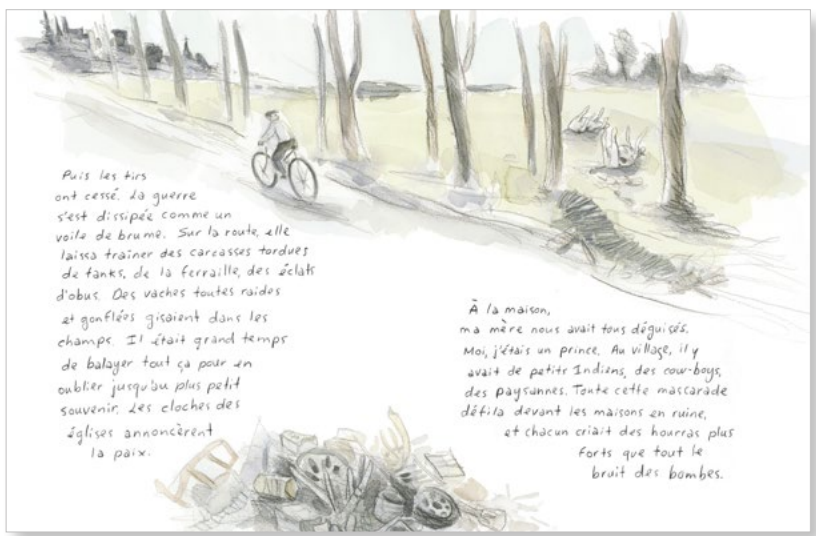 Puis les tirs
ont cessé. La guerre
s'est dissipée comme un
voile de brume. Sur la route, elle
laissa traîner des carcasses tordues
de tanks, de la ferraille, des éclats
d'obus. Des vaches toutes raides
et gonflées gisaient dans les
champs. Il était grand temps
de balayer tout ça pour en
oublier jusqu'au plus petit
souvenir. Les cloches des
églises annoncèrent
la paix.
À la maison,
ma mère nous avait tous déguisés.
Moi, j'étais un prince. Au village, il y
avait de petits Indiens, des cow-boys,
des paysannes. Toute cette mascarade
défila devant les maisons en ruine,
et chacun criait des hourras plus
forts que tout le
bruit des bombes.